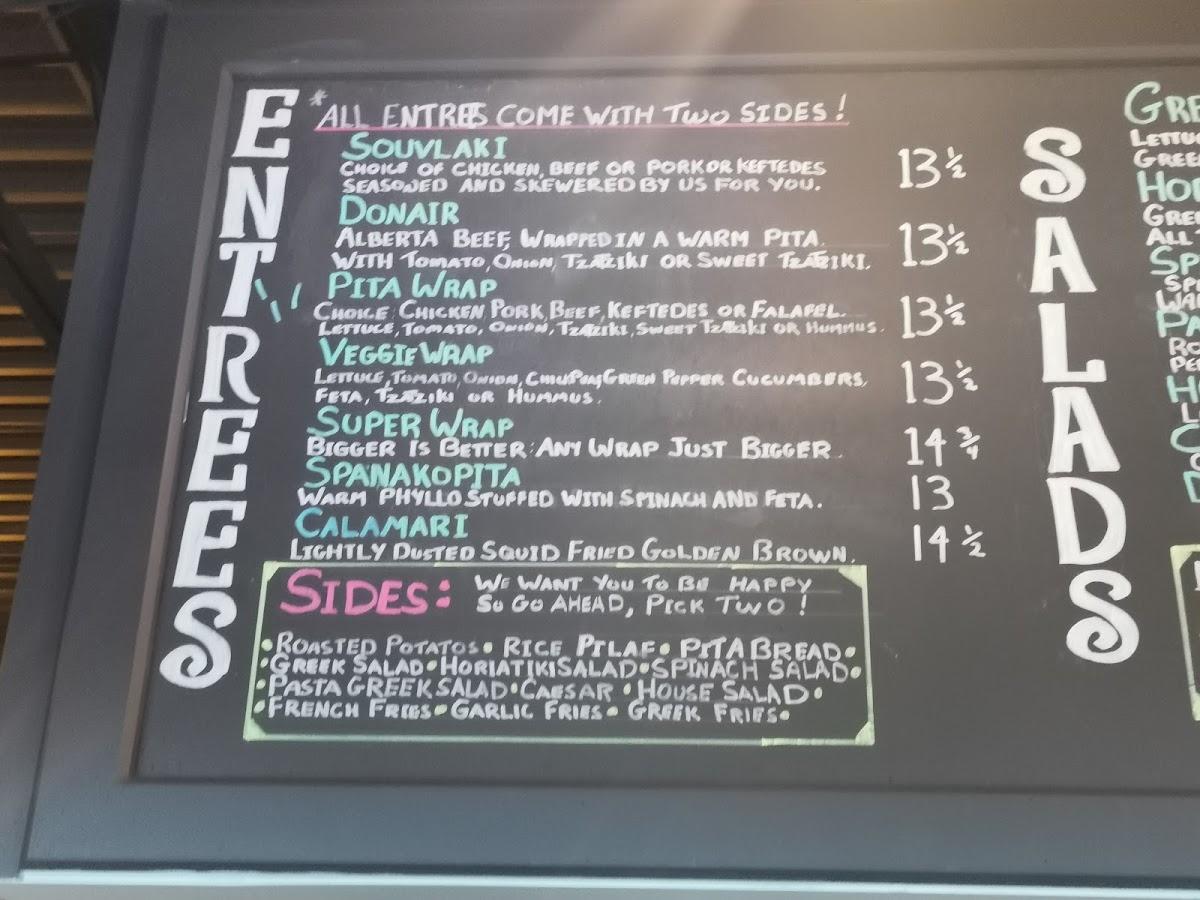 ENTREES
*ALL ENTREES COME WITH TWO SIDES!
SOUVLAKI
CHOICE OF CHICKEN, BEEF OR PORK OR KEFTEDES 13½
SEASONED AND SKEWERED BY US FOR YOU.
DONAIR
ALBERTA BEEF, WRAPPED IN A WARM PITA. 13½
WITH TOMATO, ONION, TZATZIKI OR SWEET TZATZIKI.
PITA WRAP
CHOICE: CHICKEN PORK, BEEF, KEFTEDES OR FALAFEL. 13½
LETTUCE, TOMATO, ONION, TZATZIKI, SWEET TZATZIKI OR HUMMUS.
VEGGIE WRAP
LETTUCE, TOMATO, ONION, GREEN PEPPER CUCUMBERS, 13½
FETA, TZATZIKI OR HUMMUS.
SUPER WRAP
BIGGER IS BETTER: ANY WRAP JUST BIGGER. 14¾
SPANAKOPITA
WARM PHYLLO STUFFED WITH SPINACH AND FETA. 13
CALAMARI
LIGHTLY DUSTED SQUID FRIED GOLDEN BROWN. 14½
SIDES: WE WANT YOU TO BE HAPPY
SO GO AHEAD, PICK TWO!
•ROASTED POTATOS• RICE PILAF• PITA BREAD•
•GREEK SALAD•HORIATIKI SALAD•SPINACH SALAD•
•PASTA GREEK SALAD•CAESAR •HOUSE SALAD•
•FRENCH FRIES• GARLIC FRIES• GREEK FRIES•
SALADS
GRE
LETTU
GREE
HOR
GRE
ALL
SP
SP
WA
PA
RO
PE
H
L